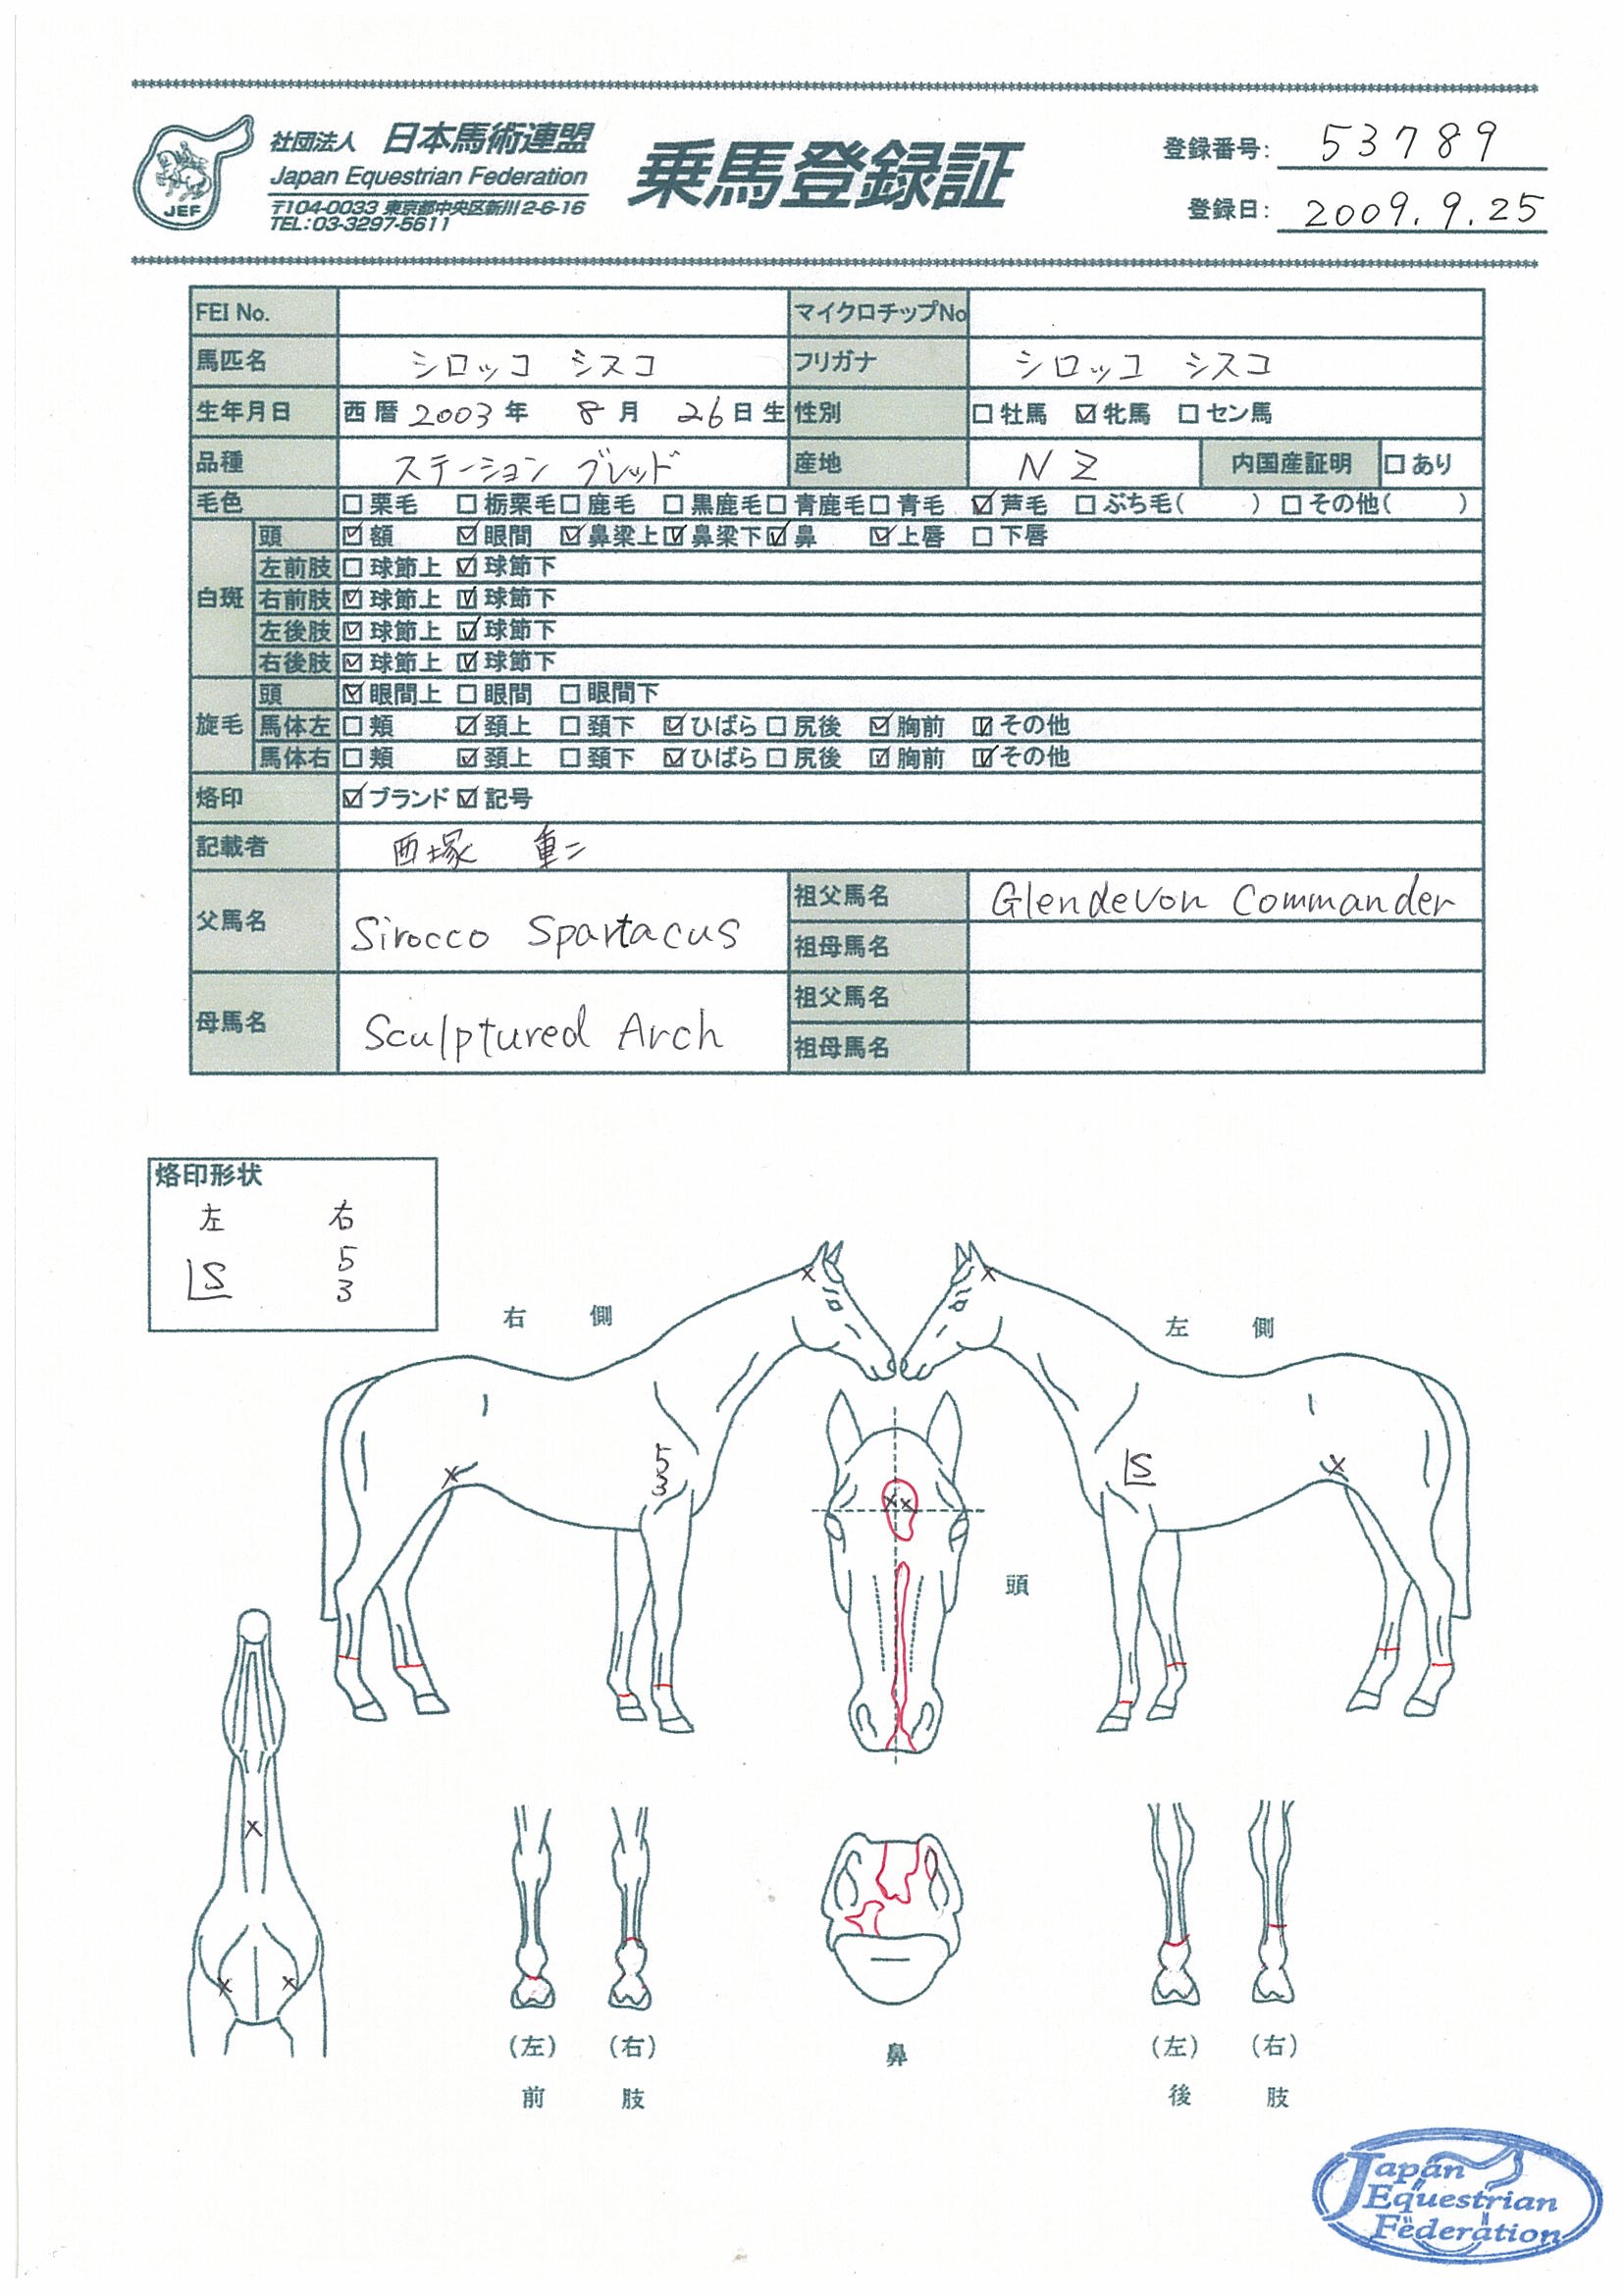 社団法人 日本馬術連盟
Japan Equestrian Federation
〒104-0033 東京都中央区新川2-6-16
TEL:03-3297-5611
JEF
乗馬登録証
登録番号: 53789
登録日: 2009.9.25
FEI No. マイクロチップNo
馬匹名 シロッコ シスコ フリガナ シロッコ シスコ
生年月日 西暦 2003 年 8 月 26 日生 性別 □牡馬 ☑牝馬 □セン馬
品種 ステーション ブレッド 産地 NZ 内国産証明 □あり
毛色 □栗毛 □栃栗毛 □鹿毛 □黒鹿毛 □青鹿毛 □青毛 ☑芦毛 □ぶち毛( ) □その他( )
白斑 頭 ☑額 ☑眼間 ☑鼻梁上 ☑鼻梁下 ☑鼻 ☑上唇 □下唇
左前肢 □球節上 ☑球節下
右前肢 ☑球節上 ☑球節下
左後肢 ☑球節上 ☑球節下
右後肢 ☑球節上 ☑球節下
旋毛 頭 ☑眼間上 □眼間 □眼間下
馬体左 □頬 ☑頚上 □頚下 ☑ひばら □尻後 ☑胸前 ☑その他
馬体右 □頬 ☑頚上 □頚下 ☑ひばら □尻後 ☑胸前 ☑その他
烙印 ☑ブランド ☑記号
記載者 西塚 重二
父馬名 Sirocco Spartacus 祖父馬名 Glendevon Commander
祖母馬名
母馬名 Sculptured Arch 祖父馬名
祖母馬名
烙印形状
左 右
S 5
3
右側 左側
5
3
S
頭
(左) (右) 鼻 (左) (右)
前肢 後肢
Japan
Equestrian
Federation